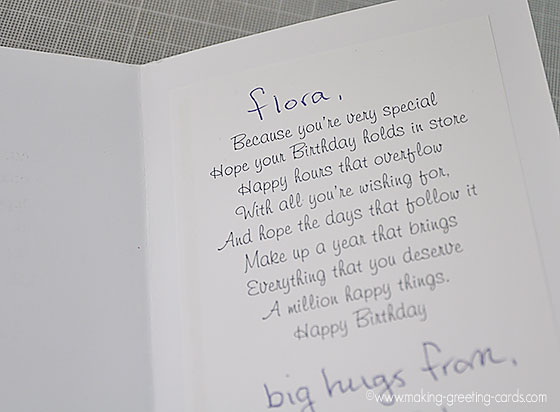 flora,
Because you're very special
Hope your Birthday holds in store
Happy hours that overflow
With all you're wishing for,
And hope the days that follow it
Make up a year that brings
Everything that you deserve
A million happy things.
Happy Birthday
big hugs from,
©www.making-greeting-cards.com